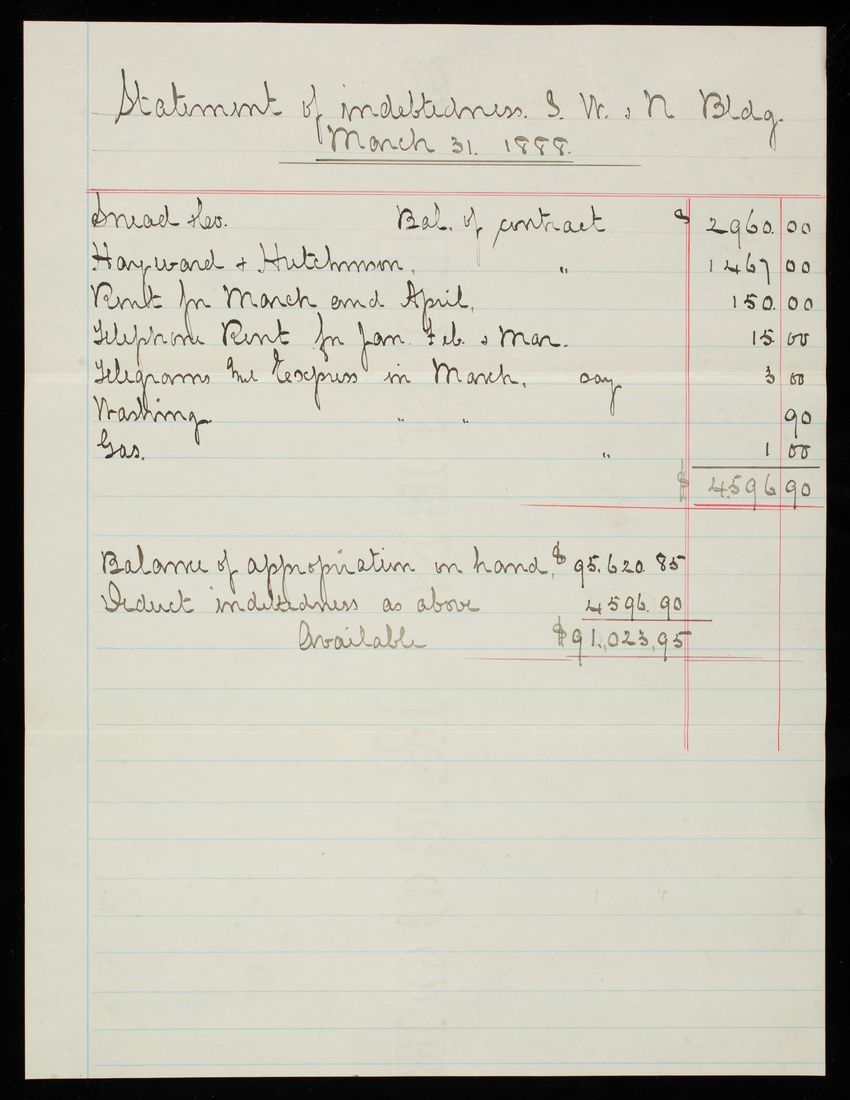 Statement of indebtedness. S. W. & N Bldg.
March 31. 1888.
Snead & Co. Bal. of contract $ 2960.00
Hayward & Hutchinson, " 1467 00
Rent for March and April, 150.00
Telephone Rent for Jan. Feb. & Mar. 15 00
Telegrams and Express in March, say 3 00
Washing " " 90
Gas. " 1 00
$ 4596 90
Balance of appropriation on hand, $ 95.620.85
Deduct indebtedness as above 4596.90
Available $91,023.95